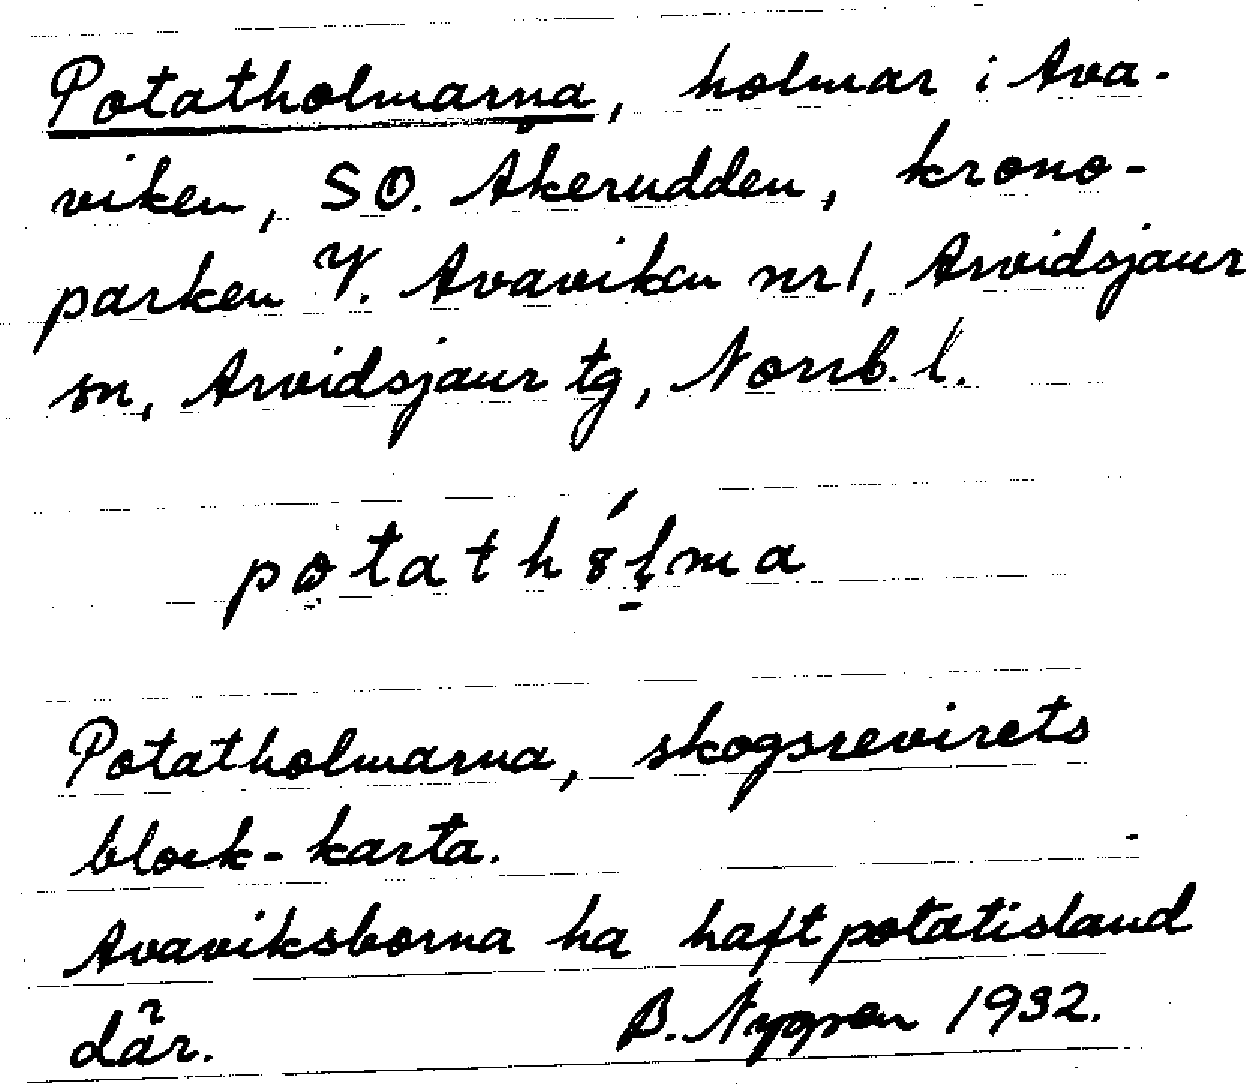 Potatholmarna, holmar i Ava-
viken, SO. Åkerudden, krono-
parken V. Avaviken nr 1, Arvidsjaur
sn, Arvidsjaur tg, Norrb. l.
potathölma
Potatholmarna, skogsrevirets
block-karta.
Avaviksborna ha haft potatisland
där. B. Nygren 1932.